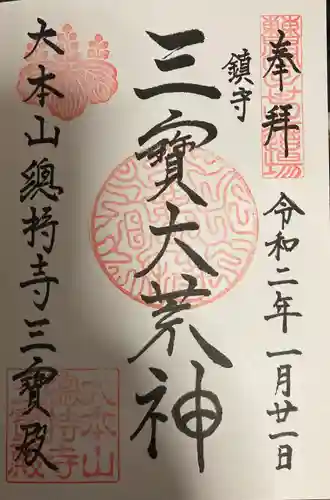 奉拝
令和二年一月廿一日
鎮守
三寳大荒神
大本山總持寺三寳殿
大本山
總持寺
三寳殿